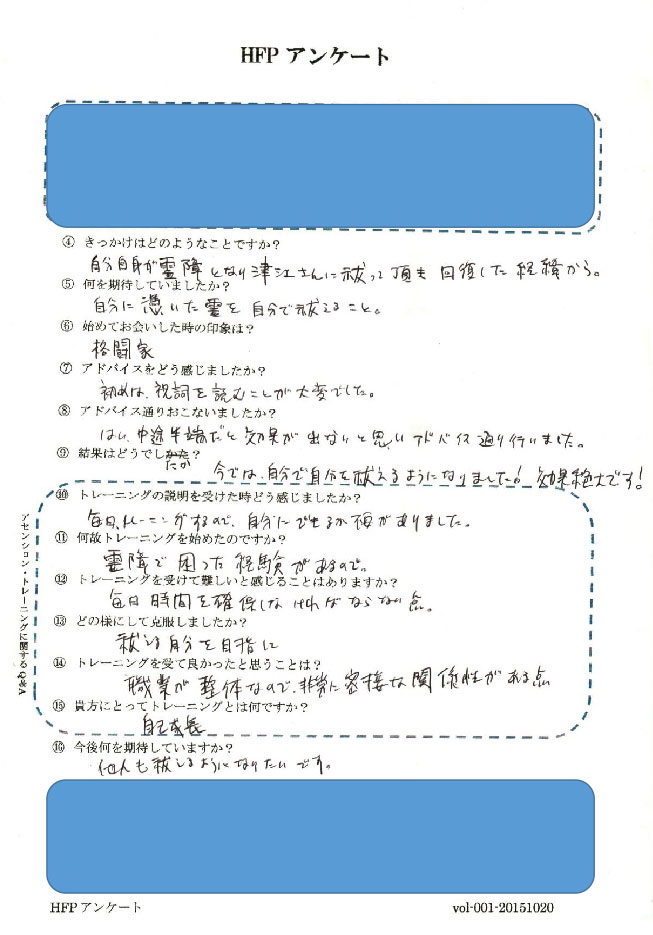 HFP アンケート
④ きっかけはどのようなことですか?
自分自身が霊障となり津江さんに祓って頂き回復した経緯から。
⑤ 何を期待していましたか?
自分に憑いた霊を自分で祓えること。
⑥ 始めてお会いした時の印象は?
格闘家
⑦ アドバイスをどう感じましたか?
初めは、祝詞を読むことが大変でした。
⑧ アドバイス通りおこないましたか?
はい、中途半端だと効果が出ないと思いアドバイス通り行いました。
⑨ 結果はどうでしたか?
今では、自分で自分を祓えるようになりました! 効果絶大です!
アセンション・トレーニングに関するQ&A
⑩ トレーニングの説明を受けた時どう感じましたか?
毎日、トレーニングするので、自分にできるか不安がありました。
⑪ 何故トレーニングを始めたのですか?
霊障で困った経験があるので。
⑫ トレーニングを受けて難しいと感じることはありますか?
毎日時間を確保しなければならない点。
⑬ どの様にして克服しましたか?
祓える自分を目指に
⑭ トレーニングを受て良かったと思うことは?
職業が整体なので、非常に密接な関係性がある点
⑮ 貴方にとってトレーニングとは何ですか?
自己成長
⑯ 今後何を期待していますか?
他人も祓えるようになりたいです。
HFP アンケート
vol-001-20151020